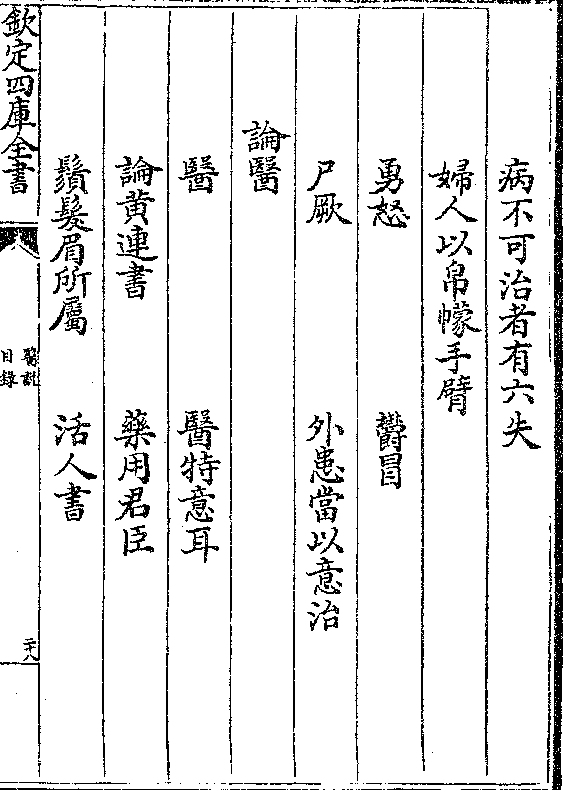 病不可治者有六失
婦人以帛幪手臂
勇怒　鬱冒
尸厥　外患當以意治
論醫
醫　醫特意耳
論黄連書　藥用君臣
鬚髮眉所屬　活人書
欽定四庫全書
醫説
目録
二十八